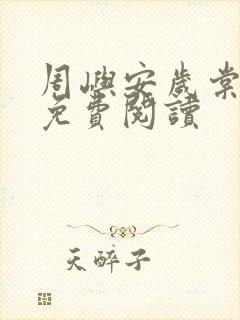 周嶼安歲棠
免費閱讀
天醉子